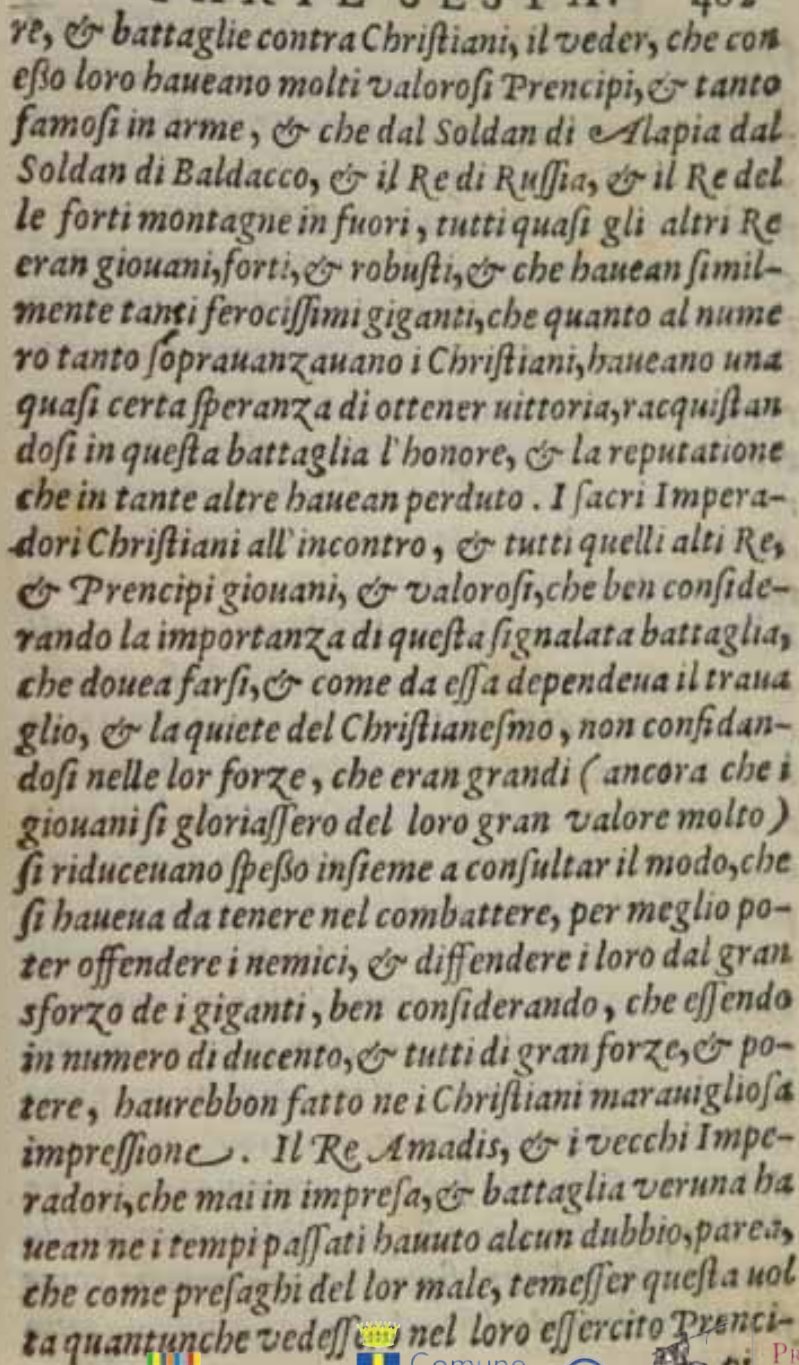 re, & battaglie contra Chriſtiani, il veder, che con
eßo loro haueano molti valoroſi Prencipi, & tanto
famoſi in arme, & che dal Soldan di Alapia dal
Soldan di Baldacco, & il Re di Ruſſia, & il Re del
le forti montagne in fuori, tutti quaſi gli altri Re
eran giouani, forti, & robuſti, & che hauean ſimil-
mente tanti ferociſſimi giganti, che quanto al nume
ro tanto ſoprauanzauano i Chriſtiani, haueano una
quaſi certa ſperanza di ottener uittoria, racquiſtan
doſi in queſta battaglia l'honore, & la reputatione
che in tante altre hauean perduto. I ſacri Impera-
dori Chriſtiani all'incontro, & tutti quelli alti Re,
& Prencipi giouani, & valoroſi, che ben conſide-
rando la importanza di queſta ſignalata battaglia,
che douea farſi, & come da eſſa dependeua il traua
glio, & la quiete del Chriſtianeſmo, non confidan-
doſi nelle lor forze, che eran grandi (ancora che i
giouani ſi gloriaſſero del loro gran valore molto)
ſi riduceuano ſpeßo inſieme a conſultar il modo, che
ſi haueua da tenere nel combattere, per meglio po-
ter offendere i nemici, & diffendere i loro dal gran
sforzo de i giganti, ben conſiderando, che eſſendo
in numero di ducento, & tutti di gran forze, & po-
tere, haurebbon fatto ne i Chriſtiani marauiglioſa
impreſſione. Il Re Amadis, & i vecchi Impe-
radori, che mai in impreſa, & battaglia veruna ha
uean ne i tempi paſſati hauuto alcun dubbio, parea,
che come preſaghi del lor male, temeſſer queſta uol
ta quantunche nel loro eſſercito Prenci-
Comune